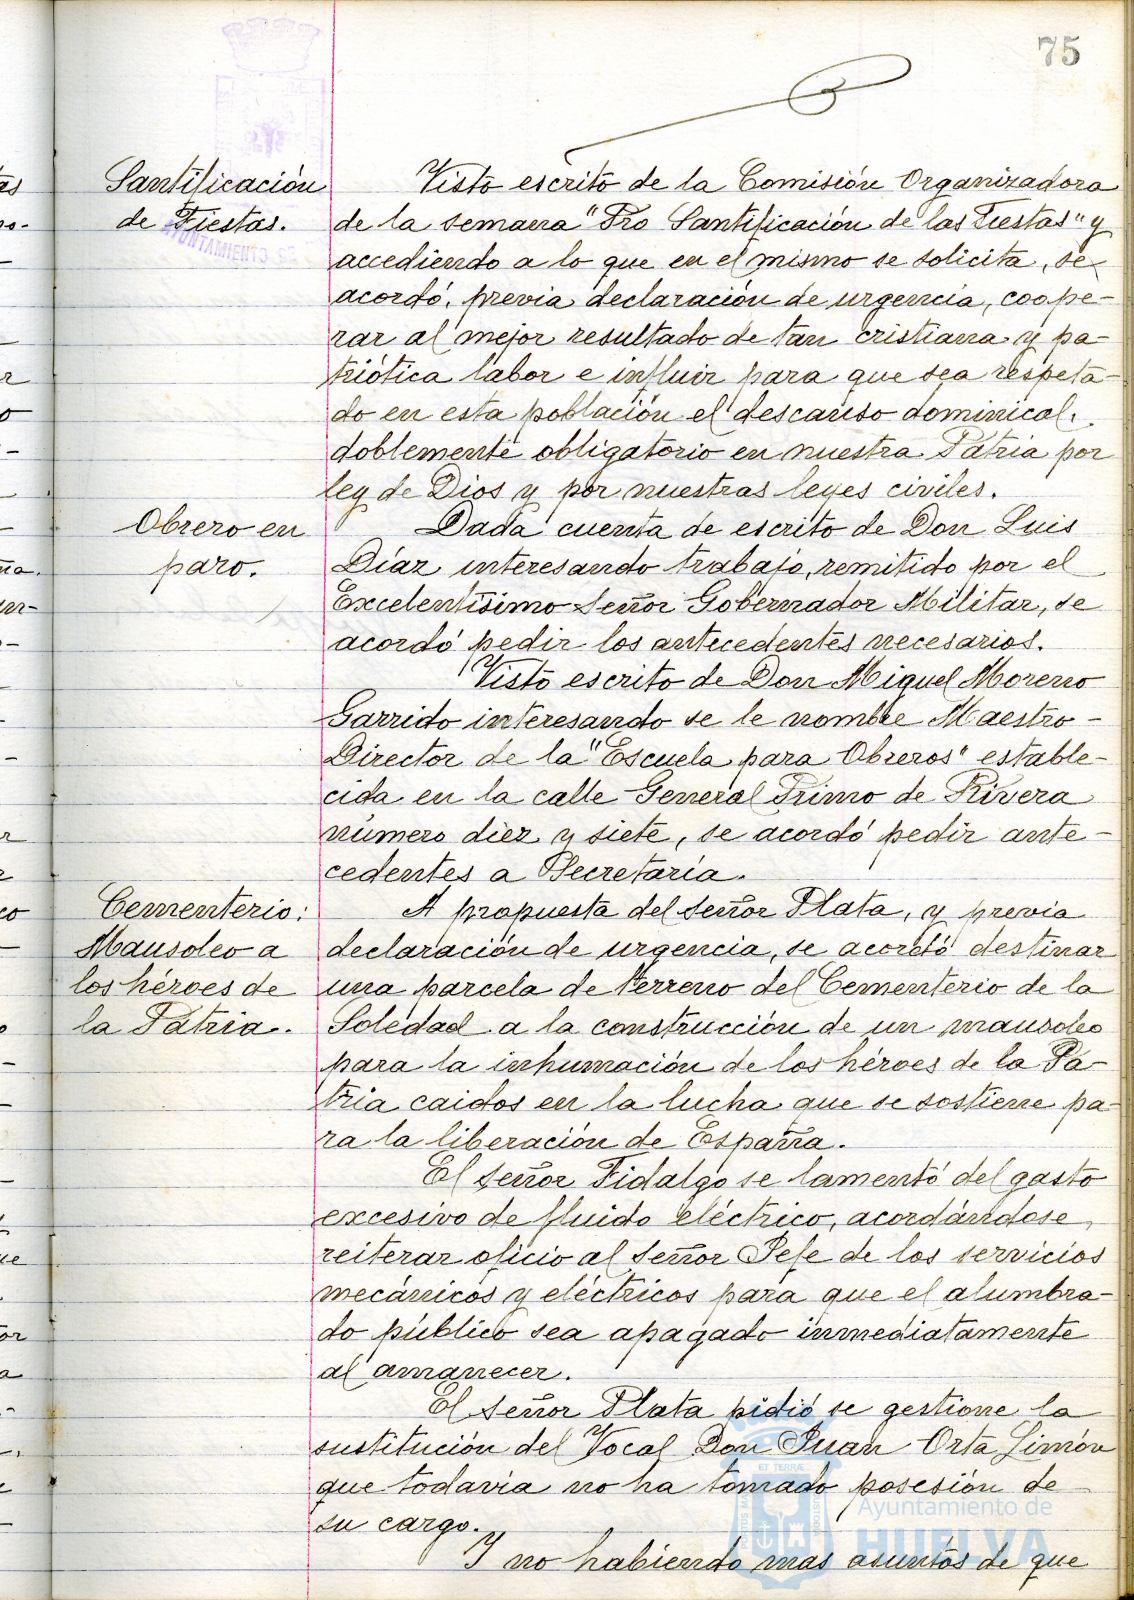 75
Santificación
de Fiestas.
Visto escrito de la Comisión Organizadora
de la semana "Pro Santificación de las Fiestas" y
accediendo a lo que en el mismo se solicita, se
acordó, previa declaración de urgencia, coope-
rar al mejor resultado de tan cristiana y pa-
triótica labor e influir para que sea respeta-
do en esta población el descanso dominical,
doblemente obligatorio en nuestra Patria por
ley de Dios y por nuestras leyes civiles.
Obrero en
paro.
Dada cuenta de escrito de Don Luis
Díaz interesando trabajo, remitido por el
Excelentísimo Señor Gobernador Militar, se
acordó pedir los antecedentes necesarios.
Visto escrito de Don Miguel Moreno
Garrido interesando se le nombre Maestro-
Director de la "Escuela para Obreros" estable-
cida en la calle General Primo de Rivera
número diez y siete, se acordó pedir ante-
cedentes a Secretaría.
Cementerio:
Mausoleo a
los héroes de
la Patria.
A propuesta del señor Plata, y previa
declaración de urgencia, se acordó destinar
una parcela de terreno del Cementerio de la
Soledad a la construcción de un mausoleo
para la inhumación de los héroes de la Pa-
tria caidos en la lucha que se sostiene pa-
ra la liberación de España.
El señor Fidalgo se lamentó del gasto
excesivo de fluido eléctrico, acordándose
reiterar oficio al señor Jefe de los servicios
mecánicos y eléctricos para que el alumbra-
do público sea apagado inmediatamente
al amanecer.
El señor Plata pidió se gestione la
sustitución del Vocal Don Juan Orta Limón
que todavía no ha tomado posesión de
su cargo.
Y no habiendo mas asuntos de que
Ayuntamiento de
HUELVA